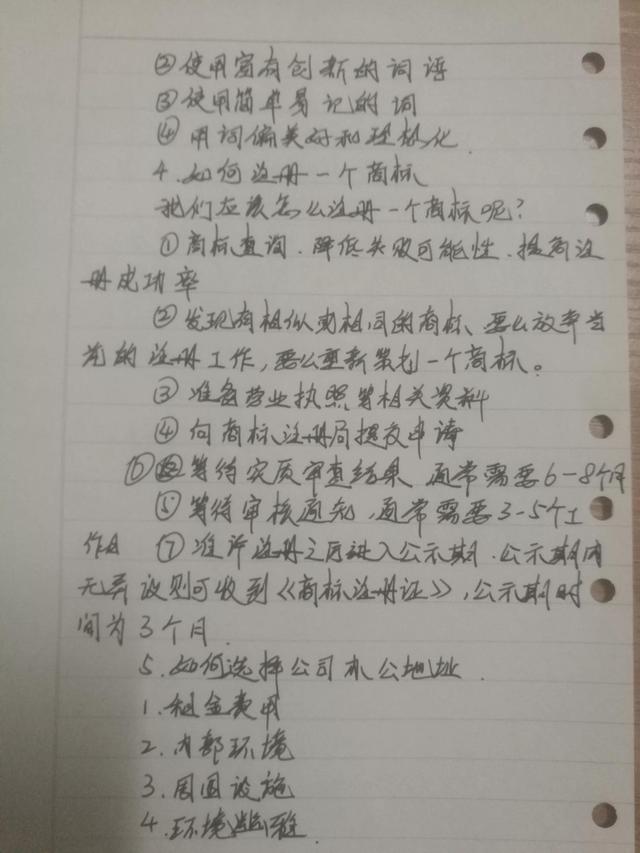 ②使用富有创新的词语
③使用简单易记的词
④用词偏美好和理想化
4.如何注册一个商标
我们应该怎么注册一个商标呢?
①商标查询.降低失败可能性.提高注
册成功率
②发现有相似或相同的商标、要么放弃当
前的注册工作,要么重新策划一个商标。
③准备营业执照等相关资料
④向商标注册局提交申请
⑥等待实质审查结果 通常需要6-8个月
⑤等待审核通知,通常需要3-5个工
作日 ⑦准许注册之后进入公示期.公示期内
无异议则可收到《商标注册证》,公示期时
间为3个月.
5.如何选择公司办公地址.
1.租金费用
2.内部环境
3.周围设施
4.环境幽雅